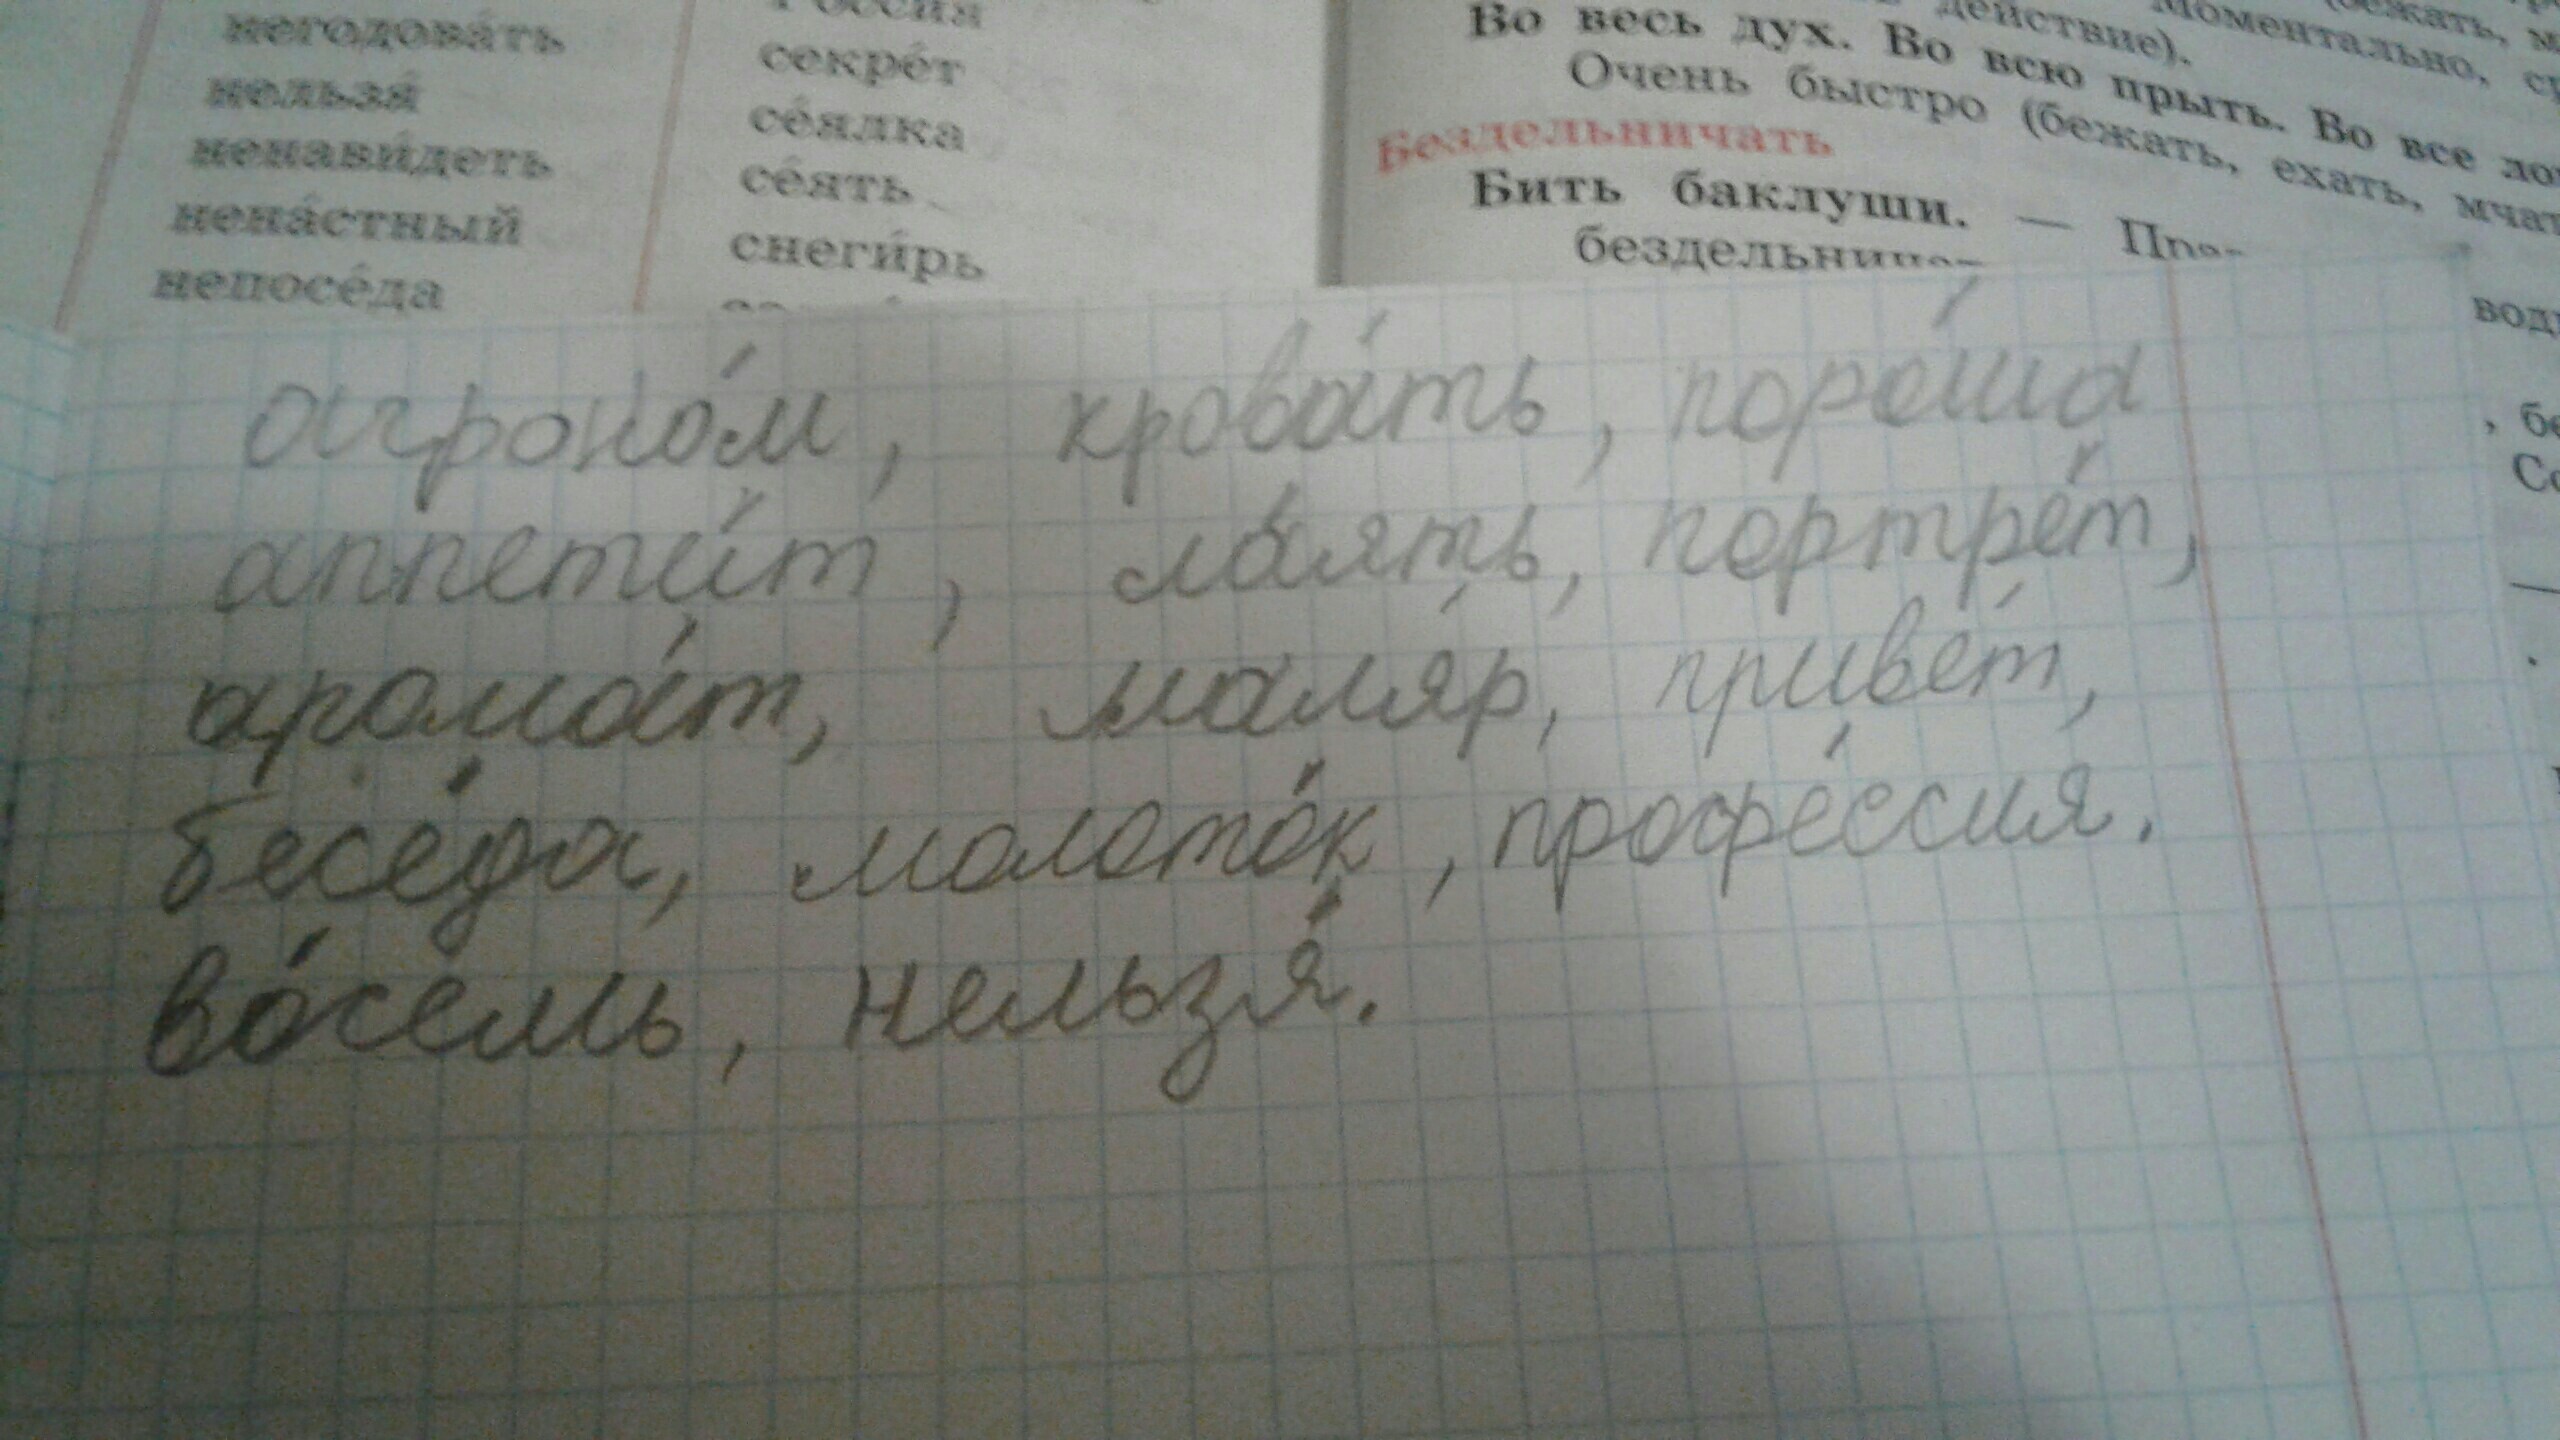 негодова́ть
нельзя́
ненави́деть
нена́стный
непосе́да
Россия
секре́т
се́ялка
се́ять
снеги́рь
действие). Моментально,
Во весь дух. Во всю прыть. Во все
Очень быстро (бежать, ехать,
Бездельничать
Бить баклуши. —
агроно́м, крова́ть, поро́ша
аппети́т, ла́ять, портре́т,
арома́т, маля́р, приве́т,
бесе́да, молото́к, профе́ссия.
во́семь, нельзя́.